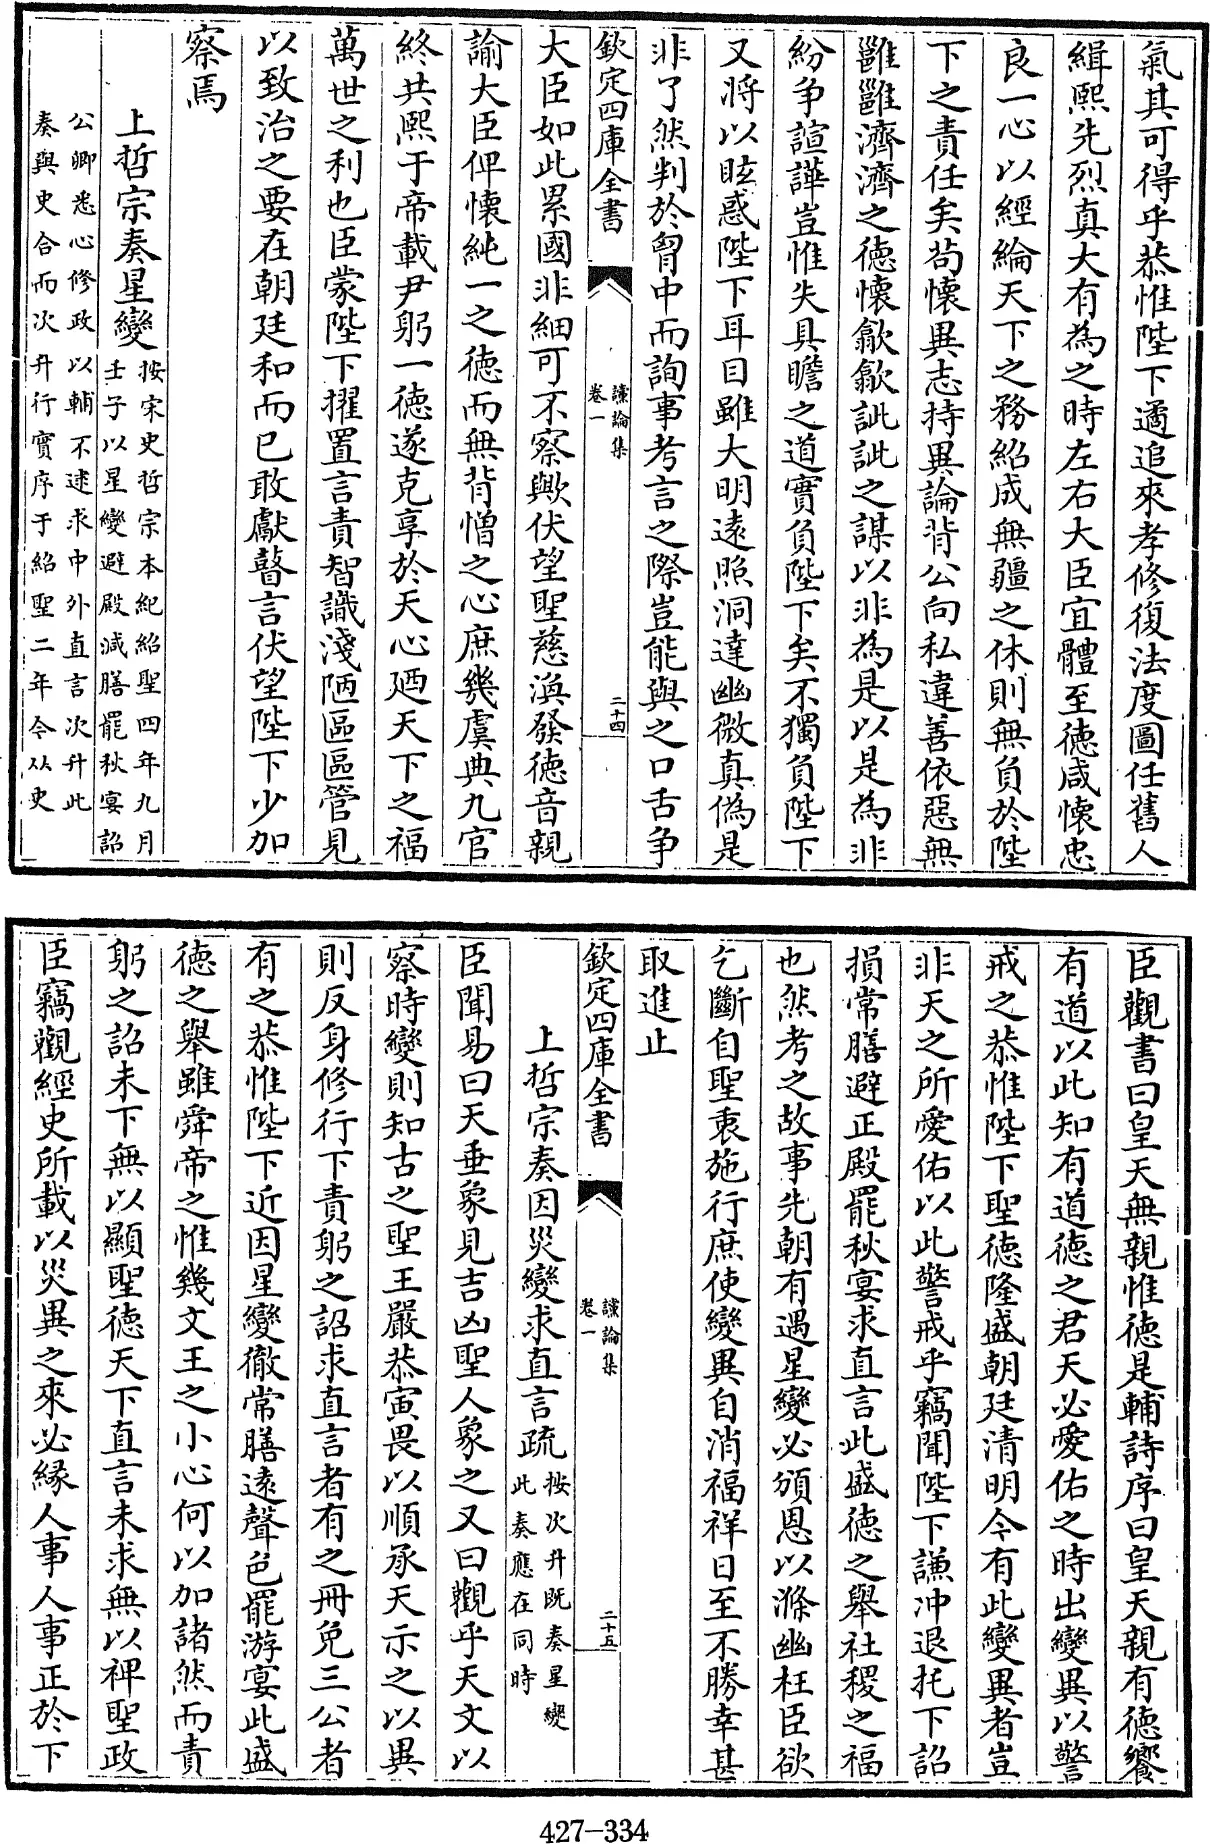 氣其可得乎恭惟陛下遹追來孝修復法度圖任舊人
緝熙先烈真大有為之時左右大臣宜體至德咸懷忠
良一心以經綸天下之務紹成無疆之休則無負於陛
下之責任矣茍懷異志持異論背公向私違善依惡無
雝雝濟濟之德懷歙歙訿訿之謀以非為是以是為非
紛争諠譁豈惟失具瞻之道實負陛下矣不獨負陛下
又將以眩惑陛下耳目雖大明遠照洞達幽微真偽是
非了然判於胷中而詢事考言之際豈能與之口舌争
欽定四庫全書
讜論集
卷一
二十四
大臣如此累國非細可不察歟伏望聖慈渙發德音親
諭大臣俾懷純一之德而無背憎之心庶幾虞典九官
終共熙于帝載尹躬一德遂克享於天心廼天下之福
萬世之利也臣蒙陛下擢置言責智識淺陋區區管見
以致治之要在朝廷和而已敢獻瞽言伏望陛下少加
察焉
上哲宗奏星變
按宋史哲宗本紀紹聖四年九月
壬子以星變避殿減膳罷秋宴詔
公卿悉心修政以輔不逮求中外直言次升此
奏與史合而次升行實序于紹聖二年今从史
臣觀書曰皇天無親惟德是輔詩序曰皇天親有德饗
有道以此知有道德之君天必愛佑之時出變異以警
戒之恭惟陛下聖德隆盛朝廷清明今有此變異者豈
非天之所愛佑以此警戒乎竊聞陛下謙冲退托下詔
損常膳避正殿罷秋宴求直言此盛德之舉社稷之福
也然考之故事先朝有遇星變必頒恩以滌幽枉臣欲
乞斷自聖衷施行庶使變異自消福祥日至不勝幸甚
取進止
欽定四庫全書
讜論集
卷一
二十五
上哲宗奏因災變求直言疏
按次升既奏星變
此奏應在同時
臣聞易曰天垂象見吉凶聖人象之又曰觀乎天文以
察時變則知古之聖王嚴恭寅畏以順承天示之以異
則反身修行下責躬之詔求直言者有之冊免三公者
有之恭惟陛下近因星變徹常膳遠聲色罷游宴此盛
德之舉雖舜帝之惟幾文王之小心何以加諸然而責
躬之詔未下無以顯聖德天下直言未求無以裨聖政
臣竊觀經史所載以災異之來必緣人事人事正於下
427-334